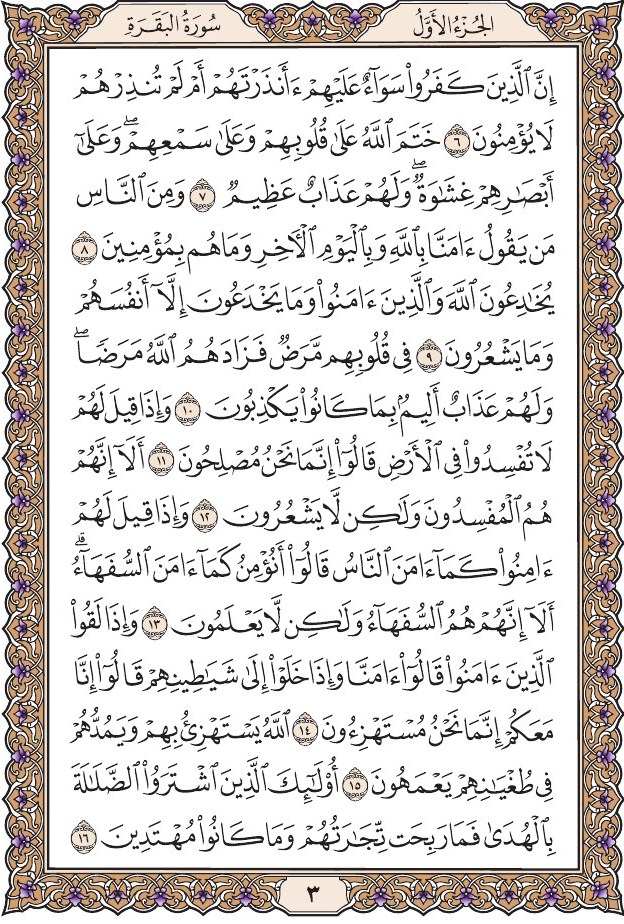 الجُزْءُ الأَوَّلُ سُورَةُ البَقَرَةِ
إِنَّ ٱلَّذِينَ كَفَرُواْ سَوَآءٌ عَلَيۡهِمۡ ءَأَنذَرۡتَهُمۡ أَمۡ لَمۡ تُنذِرۡهُمۡ
لَا يُؤۡمِنُونَ ٦ خَتَمَ ٱللَّهُ عَلَىٰ قُلُوبِهِمۡ وَعَلَىٰ سَمۡعِهِمۡۖ وَعَلَىٰٓ
أَبۡصَٰرِهِمۡ غِشَٰوَةٞۖ وَلَهُمۡ عَذَابٌ عَظِيمٞ ٧ وَمِنَ ٱلنَّاسِ
مَن يَقُولُ ءَامَنَّا بِٱللَّهِ وَبِٱلۡيَوۡمِ ٱلۡأٓخِرِ وَمَا هُم بِمُؤۡمِنِينَ ٨
يُخَٰدِعُونَ ٱللَّهَ وَٱلَّذِينَ ءَامَنُواْ وَمَا يَخۡدَعُونَ إِلَّآ أَنفُسَهُمۡ
وَمَا يَشۡعُرُونَ ٩ فِي قُلُوبِهِم مَّرَضٞ فَزَادَهُمُ ٱللَّهُ مَرَضٗاۖ
وَلَهُمۡ عَذَابٌ أَلِيمُۢ بِمَا كَانُواْ يَكۡذِبُونَ ١٠ وَإِذَا قِيلَ لَهُمۡ
لَا تُفۡسِدُواْ فِي ٱلۡأَرۡضِ قَالُوٓاْ إِنَّمَا نَحۡنُ مُصۡلِحُونَ ١١ أَلَآ إِنَّهُمۡ
هُمُ ٱلۡمُفۡسِدُونَ وَلَٰكِن لَّا يَشۡعُرُونَ ١٢ وَإِذَا قِيلَ لَهُمۡ
ءَامِنُواْ كَمَآ ءَامَنَ ٱلنَّاسُ قَالُوٓاْ أَنُؤۡمِنُ كَمَآ ءَامَنَ ٱلسُّفَهَآءُۗ
أَلَآ إِنَّهُمۡ هُمُ ٱلسُّفَهَآءُ وَلَٰكِن لَّا يَعۡلَمُونَ ١٣ وَإِذَا لَقُواْ
ٱلَّذِينَ ءَامَنُواْ قَالُوٓاْ ءَامَنَّا وَإِذَا خَلَوۡاْ إِلَىٰ شَيَٰطِينِهِمۡ قَالُوٓاْ إِنَّا
مَعَكُمۡ إِنَّمَا نَحۡنُ مُسۡتَهۡزِءُونَ ١٤ ٱللَّهُ يَسۡتَهۡزِئُ بِهِمۡ وَيَمُدُّهُمۡ
فِي طُغۡيَٰنِهِمۡ يَعۡمَهُونَ ١٥ أُوْلَٰٓئِكَ ٱلَّذِينَ ٱشۡتَرَوُاْ ٱلضَّلَٰلَةَ
بِٱلۡهُدَىٰ فَمَا رَبِحَت تِّجَٰرَتُهُمۡ وَمَا كَانُواْ مُهۡتَدِينَ ١٦
٣